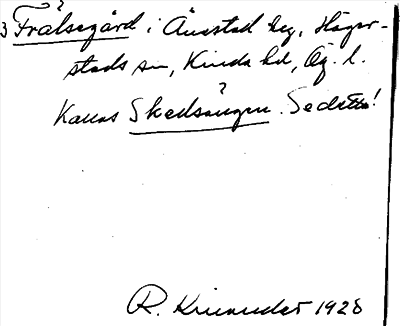 3 Frälsegård i Ånestad beg, Häger-
stads sn, Kinda hd, Ög. l.
Kallas Skedsängen. Se detta!
R. Kinander 1928